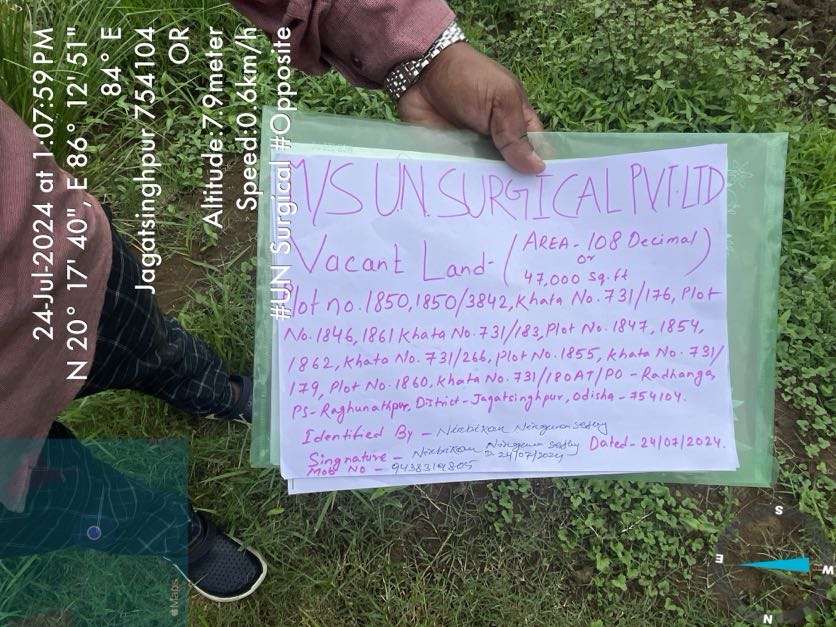 24-Jul-2024 at 1:07:59 PM
N 20° 17' 40", E 86° 12' 51"
84° E
Jagatsinghpur 754104
OR
Altitude:7.9meter
Speed:0.6km/h
#UN Surgical #Opposite
M/S U.N. SURGICAL PVT. LTD
Vacant Land- (AREA- 108 Decimal)
or
47,000 Sq.ft
Plot no. 1850, 1850/3842, Khata No. 731/176, Plot
No. 1846, 1861 Khata No. 731/183, Plot No. 1847, 1854,
1862, Khata No. 731/266, Plot No. 1855, Khata No. 731/
179, Plot No. 1860, Khata No. 731/180 AT/PO - Radhanga,
PS- Raghunathpur, District- Jagatsinghpur, Odisha - 754104.
Identified By -
Singnature - 24/07/2024 Dated- 24/07/2024.
Mob No -
S
E
W
N